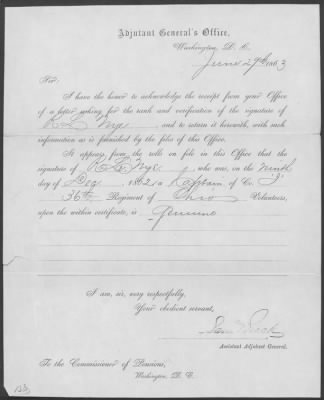 Adjutant General's Office,
Washington, D. C.
June 29th 1863
Sir:
I have the honor to acknowledge the receipt from your Office
of a letter asking for the rank and verification of the signature of
Nye, and to return it herewith, with such
information as is furnished by the files of this Office.
It appears from the rolls on file in this Office that the
signature of Nye, who was, on the Ninth
day of Dec, 1862, a Captain of Co. "I"
36th Regiment of Ohio Volunteers,
upon the within certificate, is Genuine
I am, sir, very respectfully,
Your obedient servant,
Saml Breck
Assistant Adjutant General.
To the Commissioner of Pensions,
Washington, D. C.